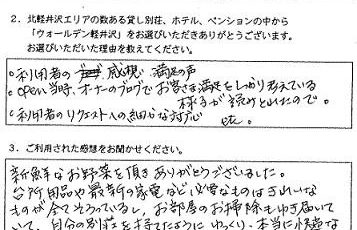 2．北軽井沢エリアの数ある貸し別荘、ホテル、ペンションの中から
「ウォールデン軽井沢」をお選びいただきありがとうございます。
お選びいただいた理由を教えてください。
○利用者の 感想 満足の声
○open当時、オーナーのブログでお客さま満足をしっかり考えている
様子が読みとれたので。
○利用者のリクエストへの細かな対応 etc.
3．ご利用された感想をお聞かせください。
新鮮なお野菜を頂きありがとうございました。
台所用品や最新の家電など必要なものはきれいな
ものが全てそろっているし、お部屋のお掃除もゆき届いて
いて、自分の別荘を持てたように ゆっくり、本当に快適な